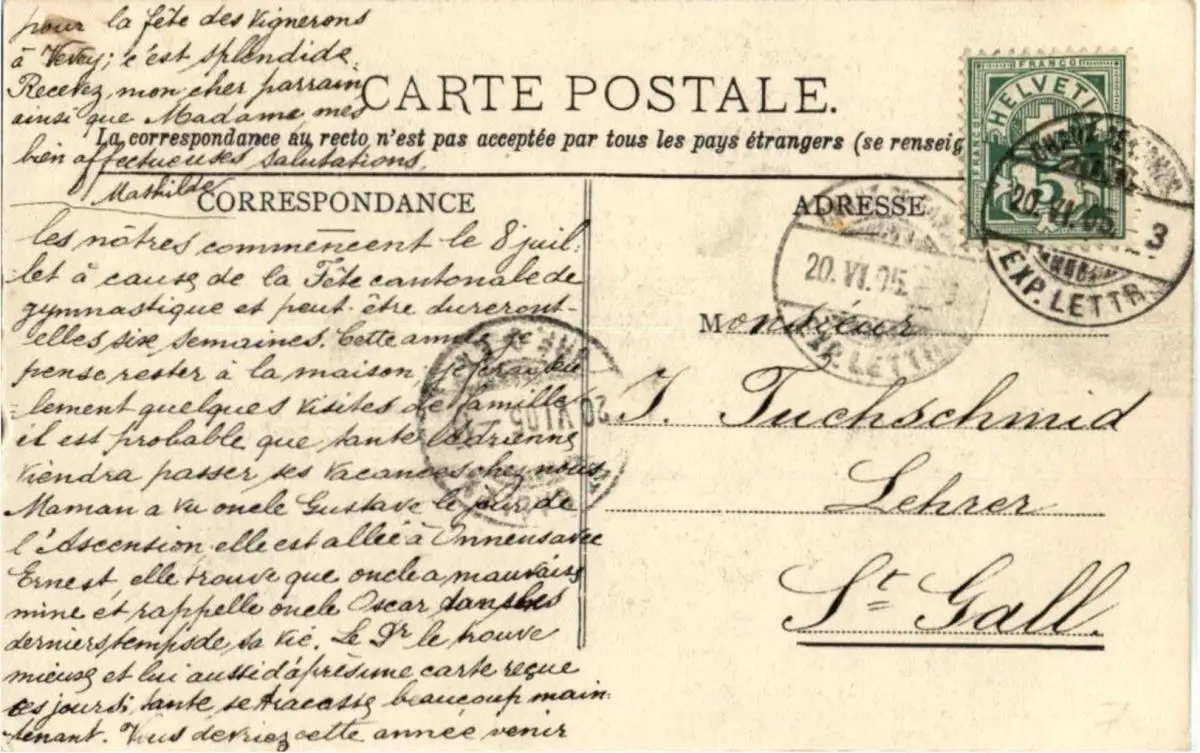 pour la fête des Vignerons
à Vevey; c'est splendide.
Recevez, mon cher parrain
ainsi que Madame mes
bien affectueuses salutations.
Mathilde
CARTE POSTALE.
La correspondance au recto n'est pas acceptée par tous les pays étrangers (se renseig
CORRESPONDANCE
les nôtres commencent le 8 juil-
let à cause de la Fête cantonale de
gymnastique et peut-être dureront-
elles six semaines. Cette année je
pense rester à la maison je ferai seu
lement quelques visites de famille,
il est probable que tante Adrienne
viendra passer ses vacances chez nous
Maman a vu oncle Gustave le jour de
l'Ascension elle est allée à Onnens avec
Ernest, elle trouve que oncle a mauvaise
mine et rappelle oncle Oscar dans les
derniers temps de sa vie. Le Dr le trouve
mieux et lui aussi d'après une carte reçue
ces jours; tante se tracasse beaucoup main-
tenant. Vous devriez cette année venir
ADRESSE
Monsieur
J. Tuchschmid
Lehrer
St Gall.
FRANCO
HELVETI
FRANCO
5
20. VI. 05
3
EXP. LETTR.
20. VI. 05.
EXP. LETTR.
20 VI 05